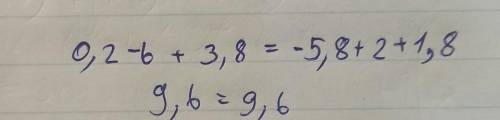 0,2 -6 + 3,8 = -5,8 + 2 + 1,8
9,6 = 9,6